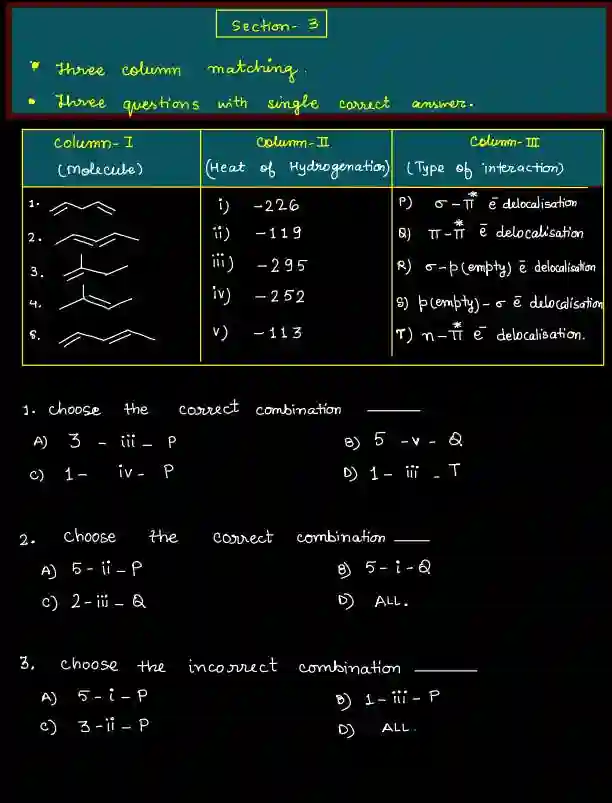 Section- 3
• Three column matching.
• Three questions with single correct answer.
Column-I Column-II Column-III
(Molecule) (Heat of Hydrogenation) (Type of interaction)
1. i) -226 P) σ-π* ē delocalisation
2. ii) -119 Q) π-π* ē delocalisation
3. iii) -295 R) σ-p(empty) ē delocalisation
4. iv) -252 S) p(empty)-σ ē delocalisation
5. v) -113 T) n-π* ē delocalisation.
1. choose the correct combination ____
A) 3 - iii - P B) 5 - v - Q
C) 1- iv- P D) 1- iii - T
2. choose the correct combination ____
A) 5- ii - P B) 5-i-Q
C) 2-iii- Q D) ALL.
3. choose the incorrect combination ____
A) 5-i-P B) 1-iii-P
C) 3-ii-P D) ALL.